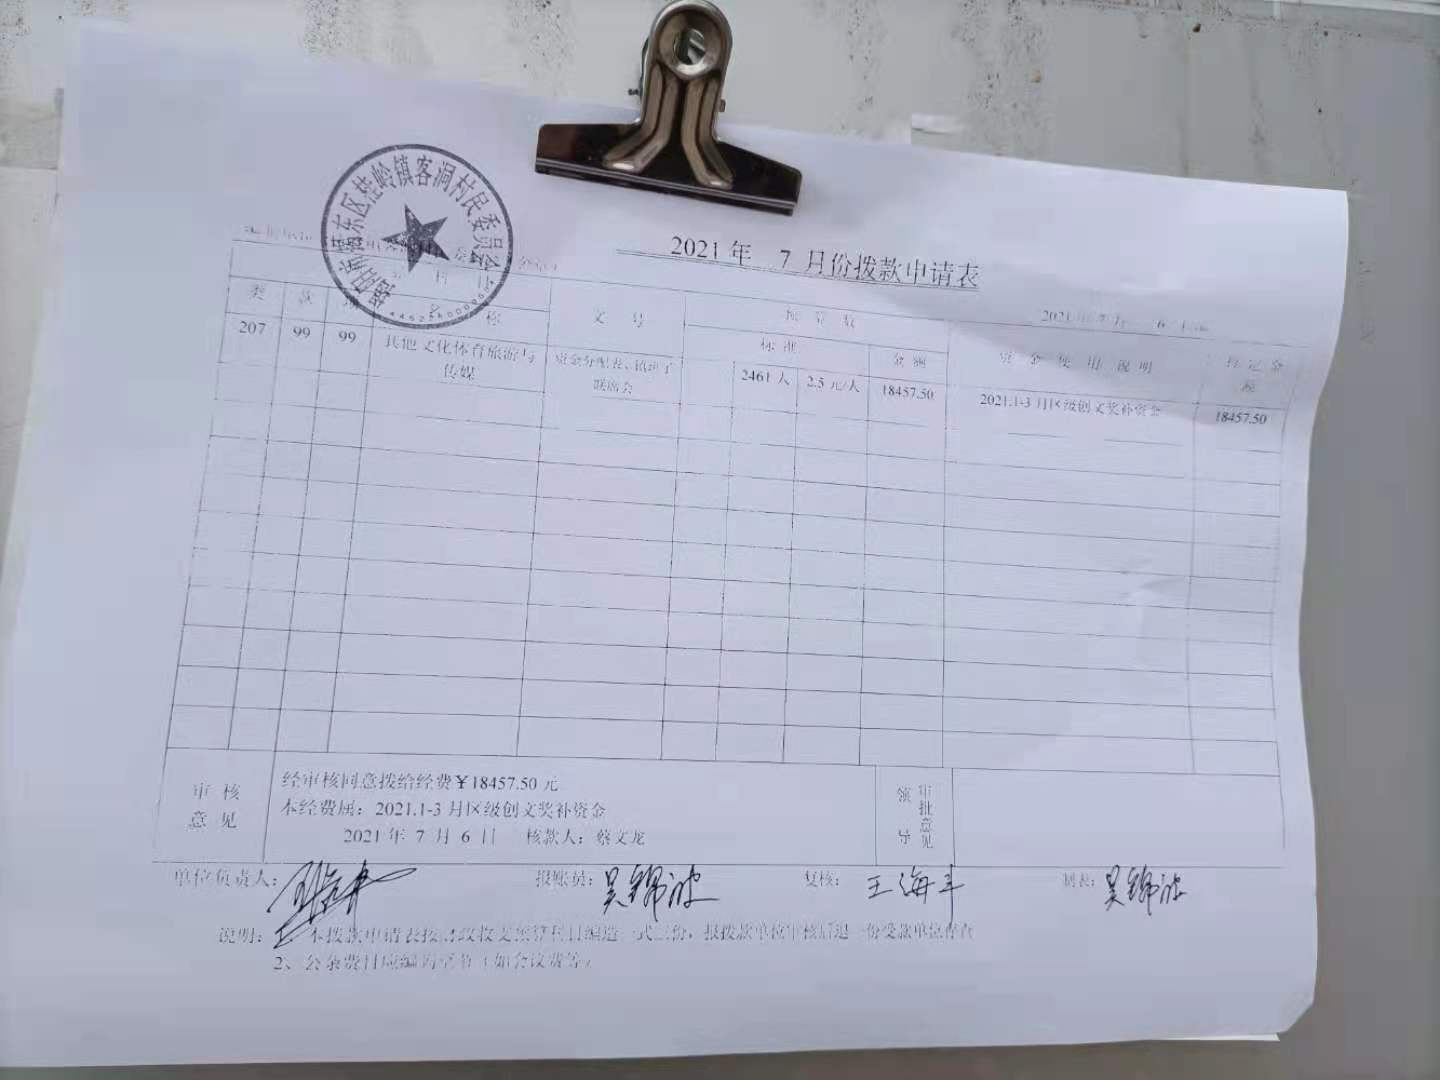 揭阳市揭东区桂岭镇客洞村民委员会
2021 年 7 月份拨款申请表
类 款 称
文 号
预 算 数
标 准
金 额
资 金 使 用 说 明
207 99 99 其他文化体育旅游与传媒
联席会
2461 人 2.5 元/人 18457.50 2021.1-3 月区级创文奖补资金 18457.50
审 核
意 见
经审核同意拨给经费￥18457.50 元
本经费属：2021.1-3 月区级创文奖补资金
2021 年 7 月 6 日 核款人：蔡文龙
领导
审批意见
单位负责人： 报账员：吴锦波 复核：王海丰 制表：吴锦波
说明： 本拨款申请表按 一式三份，报拨款单位审核后退一份受款单位存查
2、